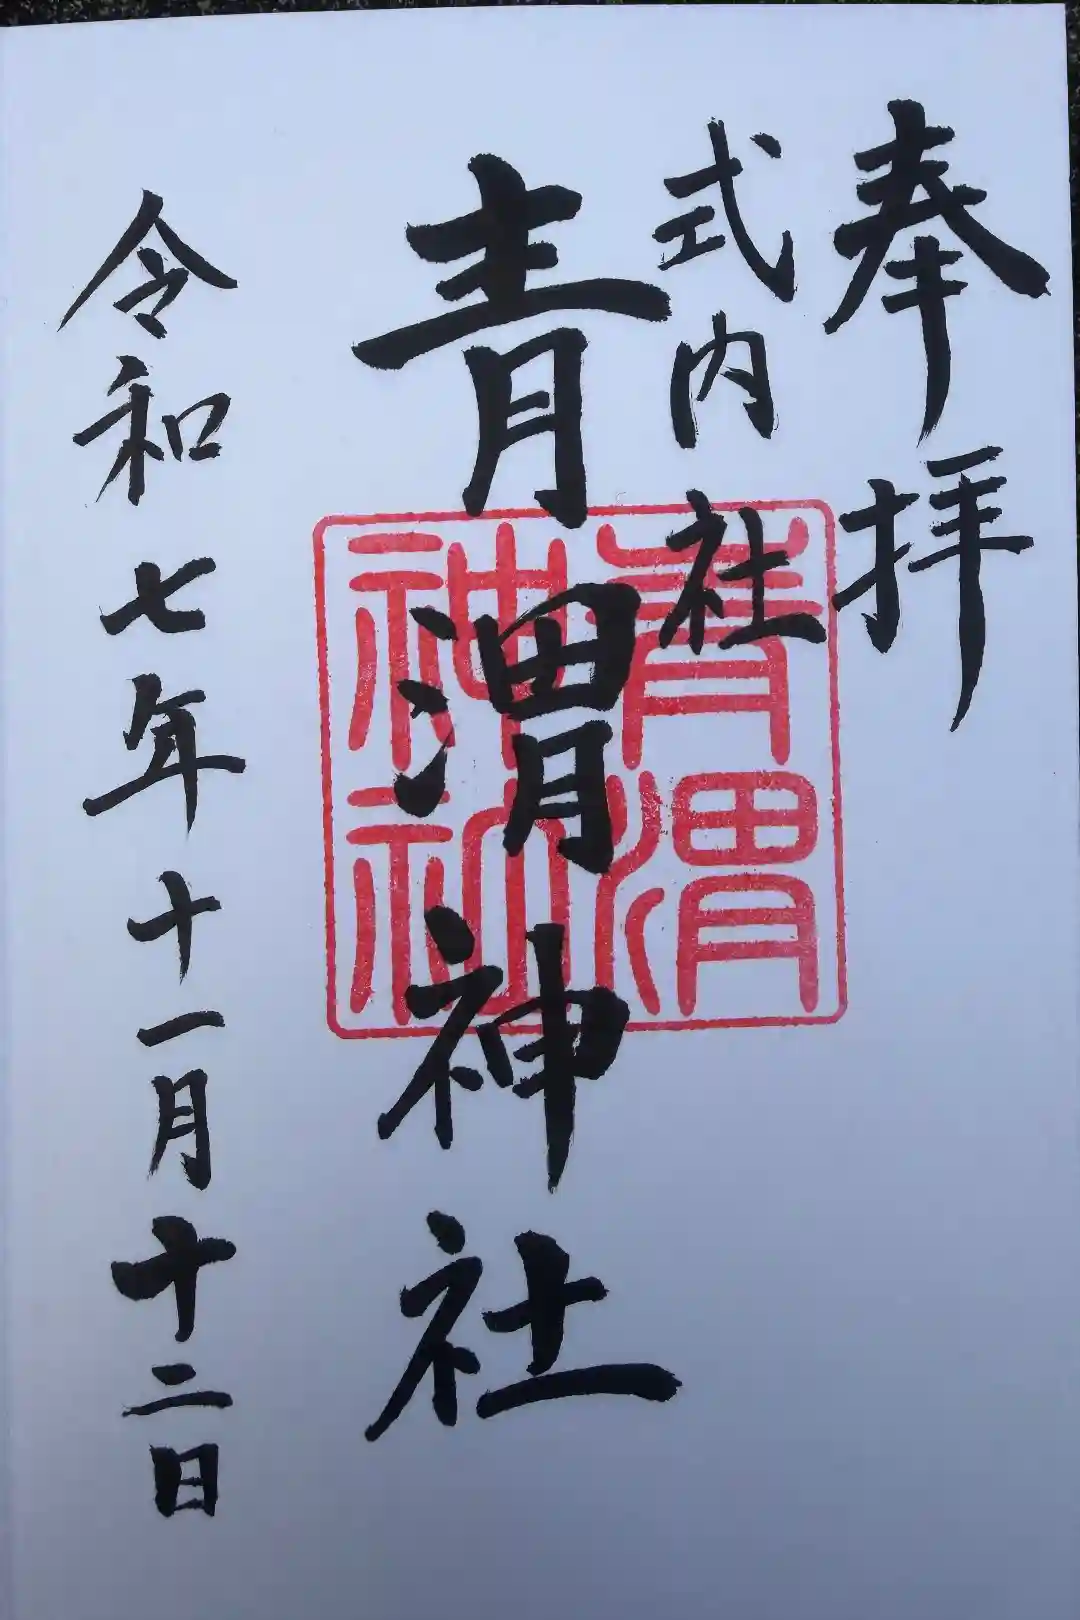 奉拝
式内社
青渭神社
青渭
神社
令和七年十一月十二日